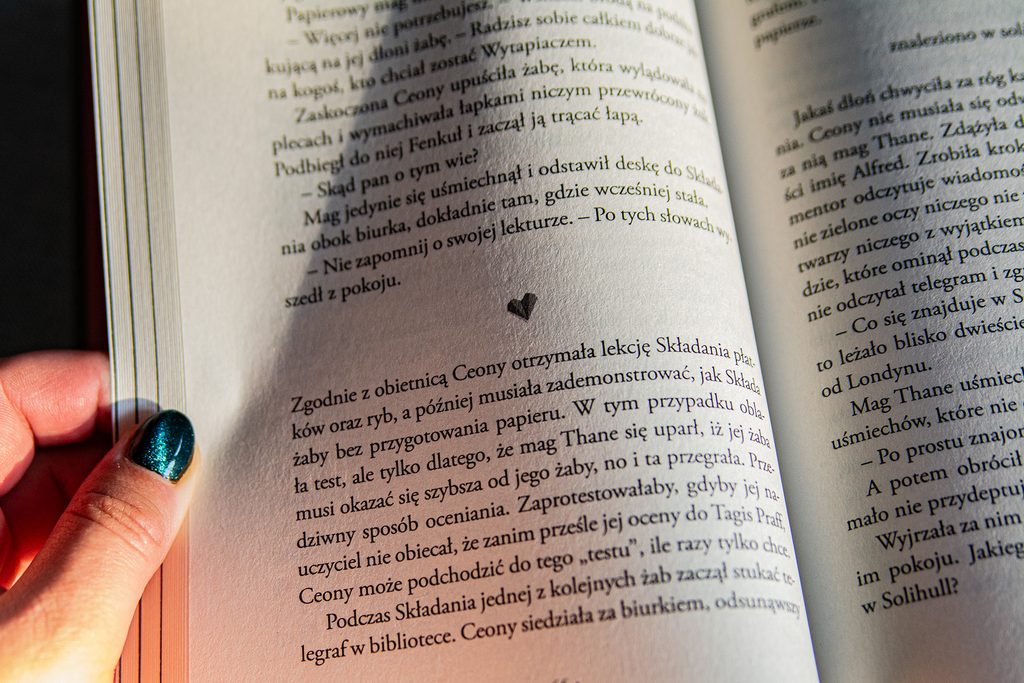 Papierowy mag
– Więcej nie potrzebujesz.
kującą na jej dłoni żabę. – Radzisz sobie całkiem dobrze jak
na kogoś, kto chciał zostać Wytapiaczem.
Zaskoczona Ceony upuściła żabę, która wylądowała na
plecach i wymachiwała łapkami niczym przewrócony żuk.
Podbiegł do niej Fenkuł i zaczął ją trącać łapą.
– Skąd pan o tym wie?
Mag jedynie się uśmiechnął i odstawił deskę do Składa-
nia obok biurka, dokładnie tam, gdzie wcześniej stała.
– Nie zapomnij o swojej lekturze. – Po tych słowach wy-
szedł z pokoju.
Zgodnie z obietnicą Ceony otrzymała lekcję Składania płat-
ków oraz ryb, a później musiała zademonstrować, jak Składa
żaby bez przygotowania papieru. W tym przypadku obla-
ła test, ale tylko dlatego, że mag Thane się uparł, iż jej żaba
musi okazać się szybsza od jego żaby, no i ta przegrała. Prze-
dziwny sposób oceniania. Zaprotestowałaby, gdyby jej na-
uczyciel nie obiecał, że zanim prześle jej oceny do Tagis Praff,
Ceony może podchodzić do tego „testu”, ile razy tylko chce.
Podczas Składania jednej z kolejnych żab zaczął stukać te-
legraf w bibliotece. Ceony siedziała za biurkiem, odsunąwszy
papierze.
znaleziono w soli
Jakaś dłoń chwyciła za róg ka
nia. Ceony nie musiała się odw
za nią mag Thane. Zdążyła d
ści imię Alfred. Zrobiła krok
mentor odczytuje wiadomoś
nie zielone oczy niczego nie
twarzy niczego z wyjątkiem
dzie, które ominął podczas
nie odczytał telegram i zg
– Co się znajduje w S
to leżało blisko dwieście
od Londynu.
Mag Thane uśmiech
uśmiechów, które nie
– Po prostu znajom
A potem obrócił
mało nie przydeptuj
Wyjrzała za nim
im pokoju. Jakieg
w Solihull?